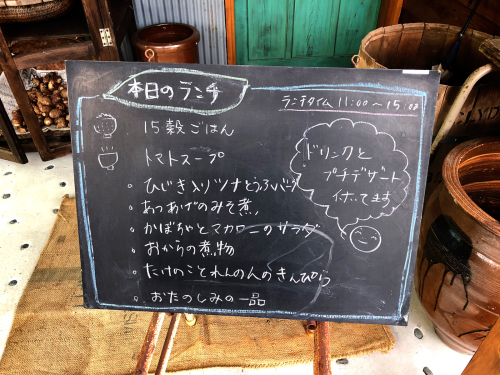 本日のランチ
ランチタイム 11:00〜15:00
15穀ごはん
トマトスープ
ドリンクと
プチデザート
付いてます
・ひじき入りツナとうふバーグ
・あつあげのみそ煮
・かぼちゃとマカロニのサラダ
・おからの煮物
・たけのことれんこんのきんぴら
・おたのしみの一品